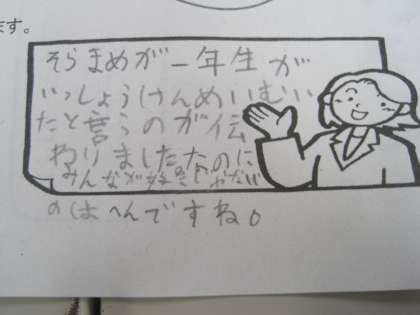 ます。
そらまめが一年生が
いっしょうけんめいむい
たと言うのが伝
わりましたなのに
みんなが好きじゃない
のはへんですね。